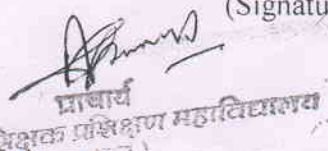 (Signatu
प्राचार्य
शिक्षक प्रशिक्षण महाविद्यालय